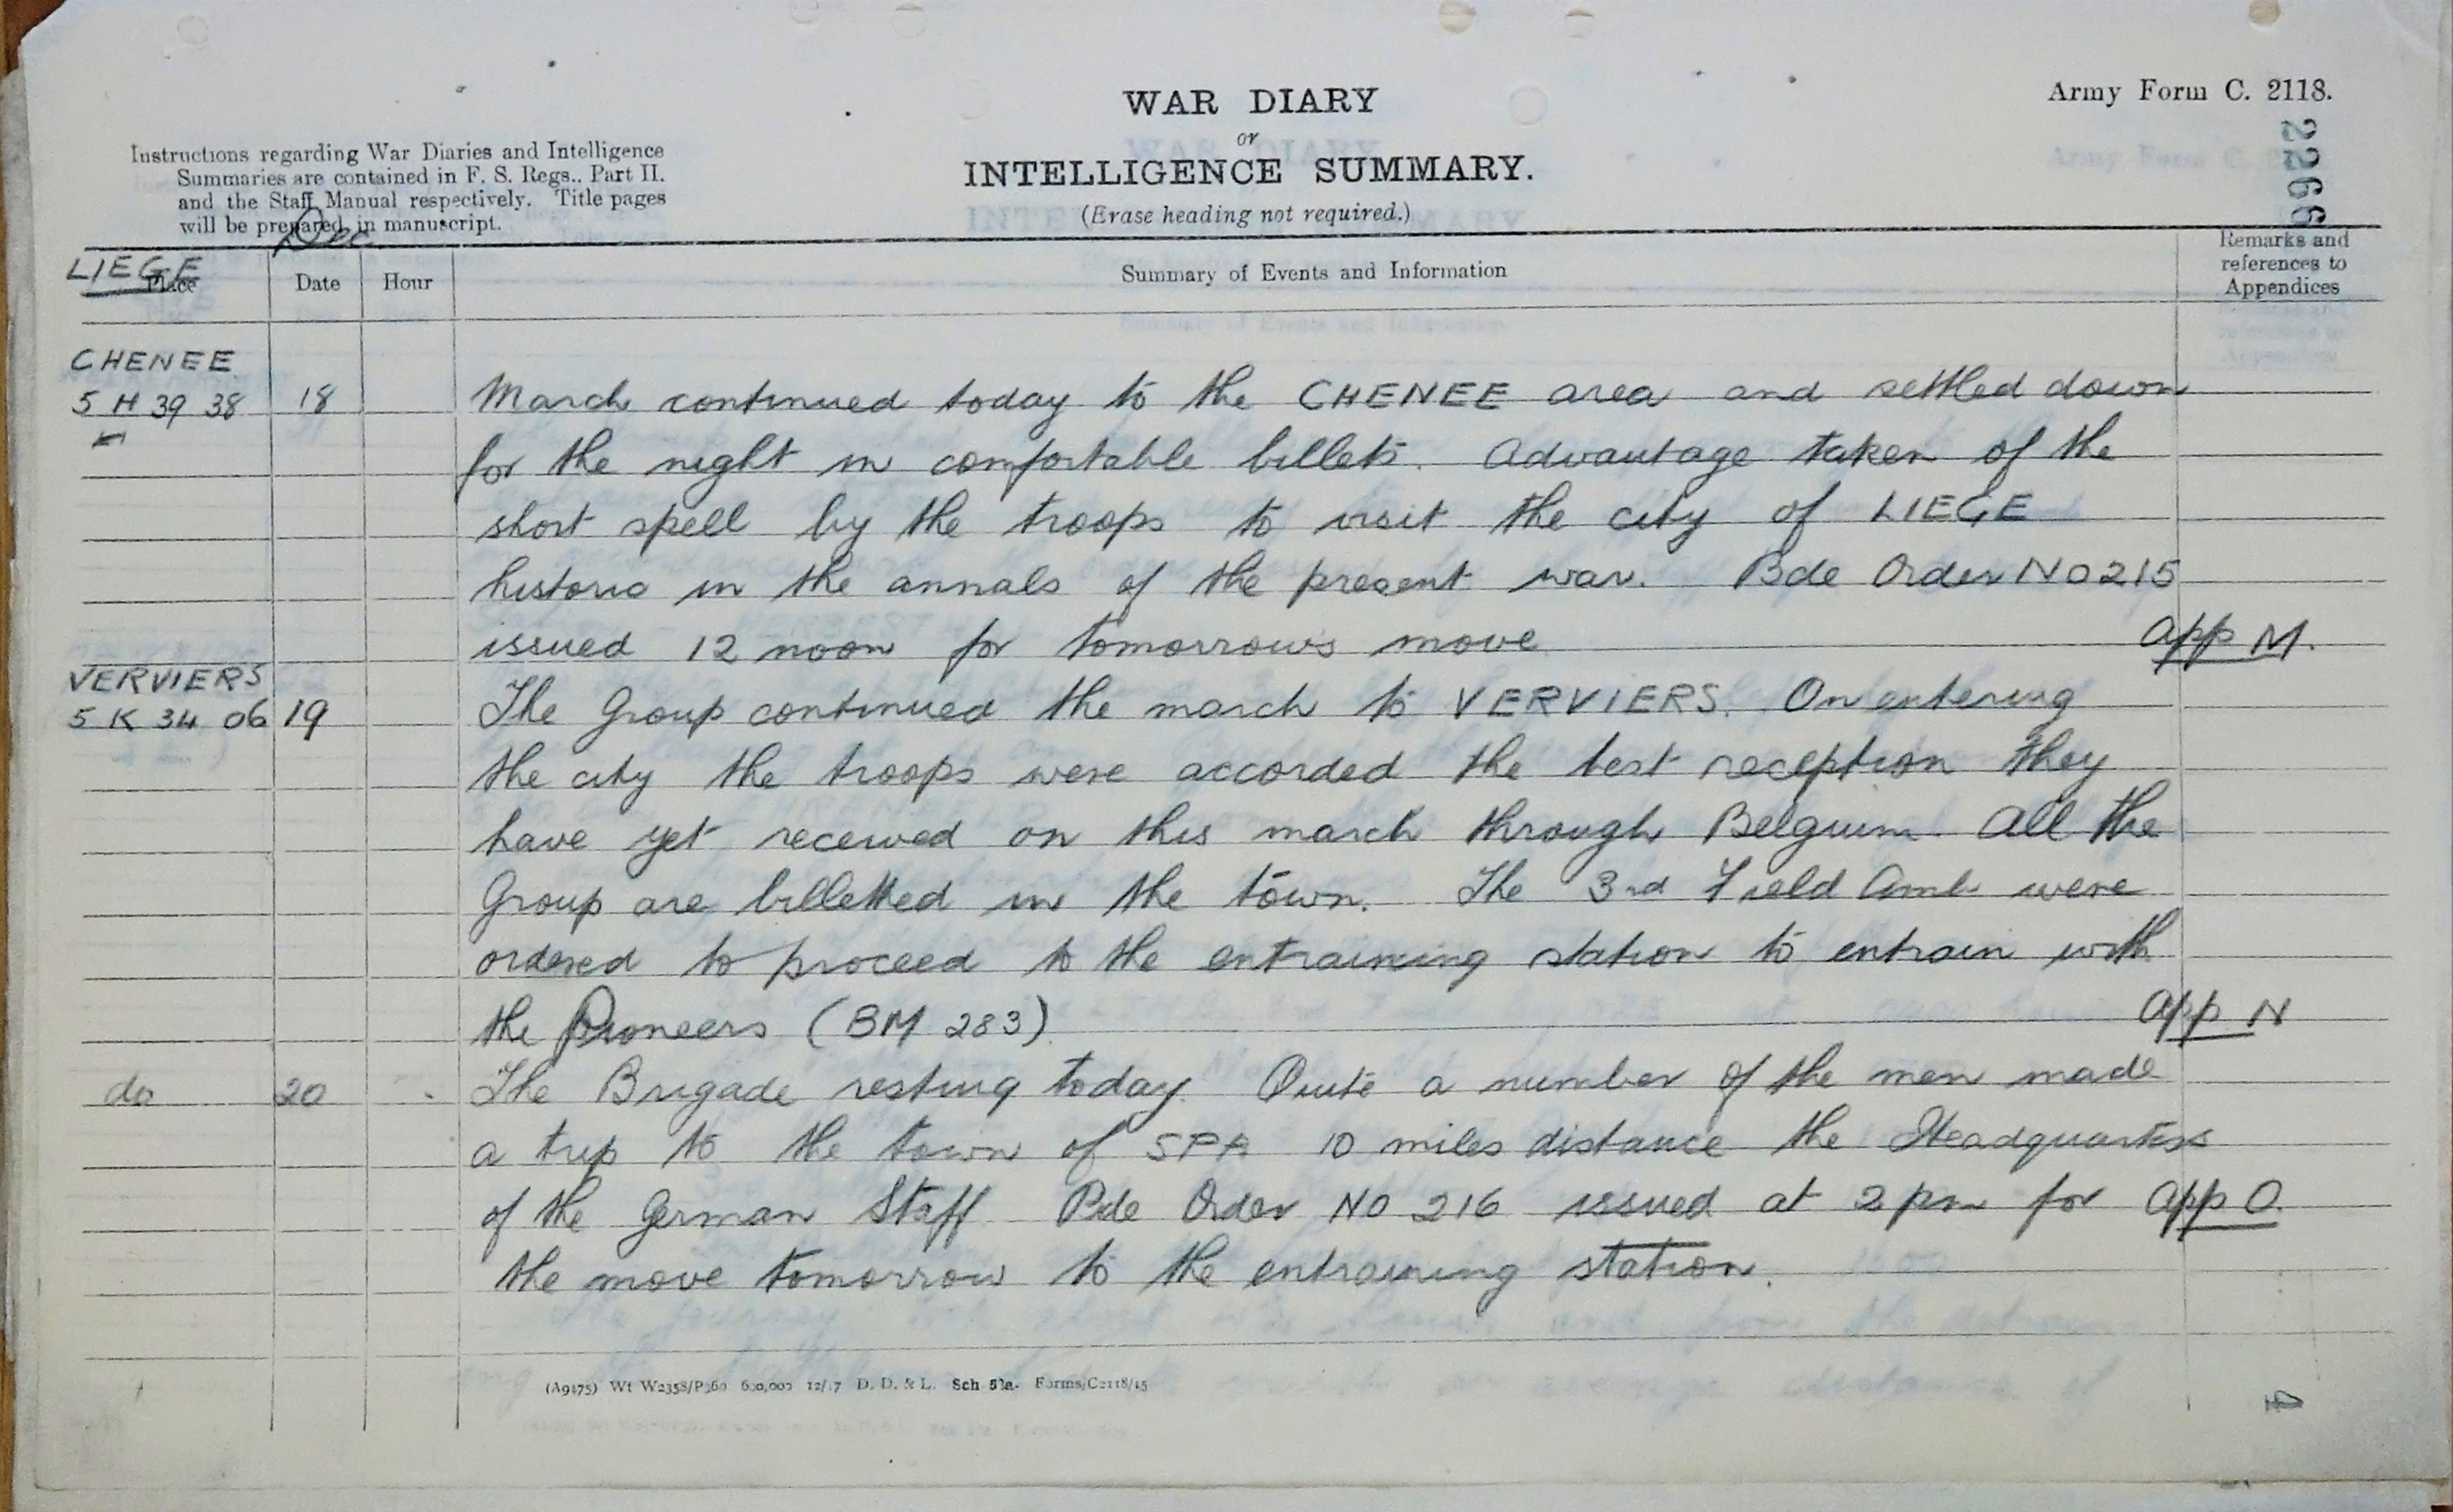 WAR DIARY
or
INTELLIGENCE SUMMARY.
(Erase heading not required.)
Army Form C. 2118.
2266
Instructions regarding War Diaries and Intelligence
Summaries are contained in F. S. Regs., Part II.
and the Staff Manual respectively. Title pages
will be prepared in manuscript.
Dec
LIEGE
Place
Date
Hour
Summary of Events and Information
Remarks and
references to
Appendices
CHENEE
5 H 39 38 18 March continued today to the CHENEE area and settled down
for the night in comfortable billets. Advantage taken of the
short spell by the troops to visit the city of LIEGE
historic in the annals of the present war. Bde Order No 215
issued 12 noon for tomorrows move app M.
VERVIERS
5 K 34 06 19 The Group continued the march to VERVIERS. On entering
the city the troops were accorded the best reception they
have yet received on this march through Belgium. All the
Group are billetted in the town. The 3rd Field Amb were
ordered to proceed to the entraining station to entrain with
the Pioneers (BM 283) app N
do 20 The Brigade resting today. Quite a number of the men made
a trip to the town of SPA 10 miles distance the Headquarters
of the German Staff. Bde Order No 216 issued at 2 pm for app O.
the move tomorrow to the entraining station.
(A9475) Wt W2358/P360 600,000 12/17 D. D. & L. Sch 52a. Forms/C2118/15
4